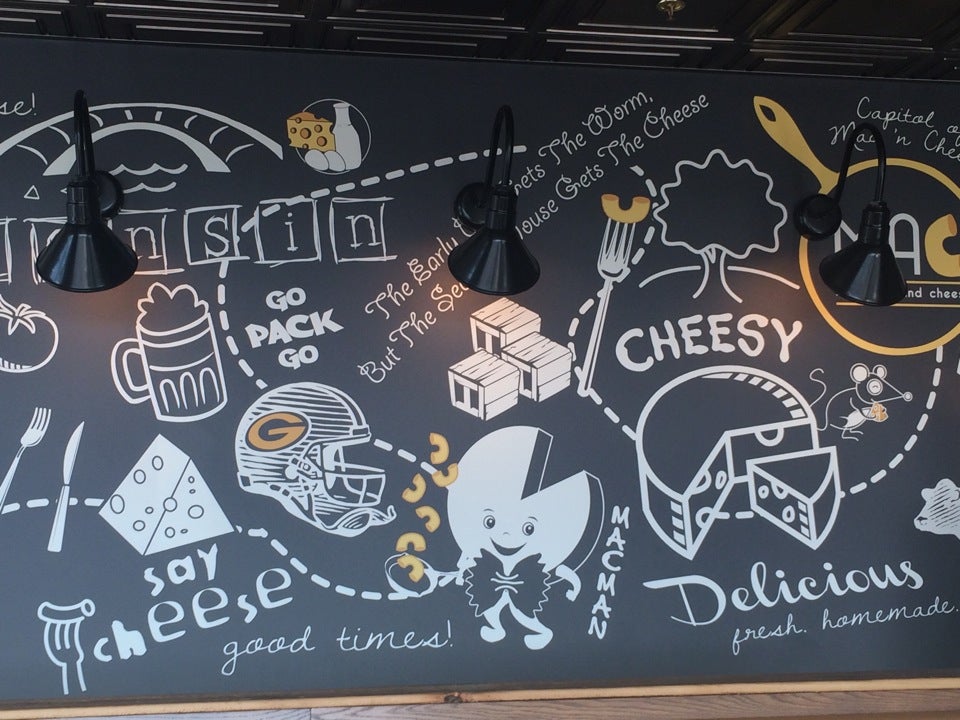 se!
n s i n
GO
PACK
GO
G
The Early
ets The Worm,
But The Se
ouse Gets The Cheese
Capitol
Mac 'n Chee
MAC
nd chees
CHEESY
MACMAN
say
cheese
good times!
Delicious
fresh. homemade.